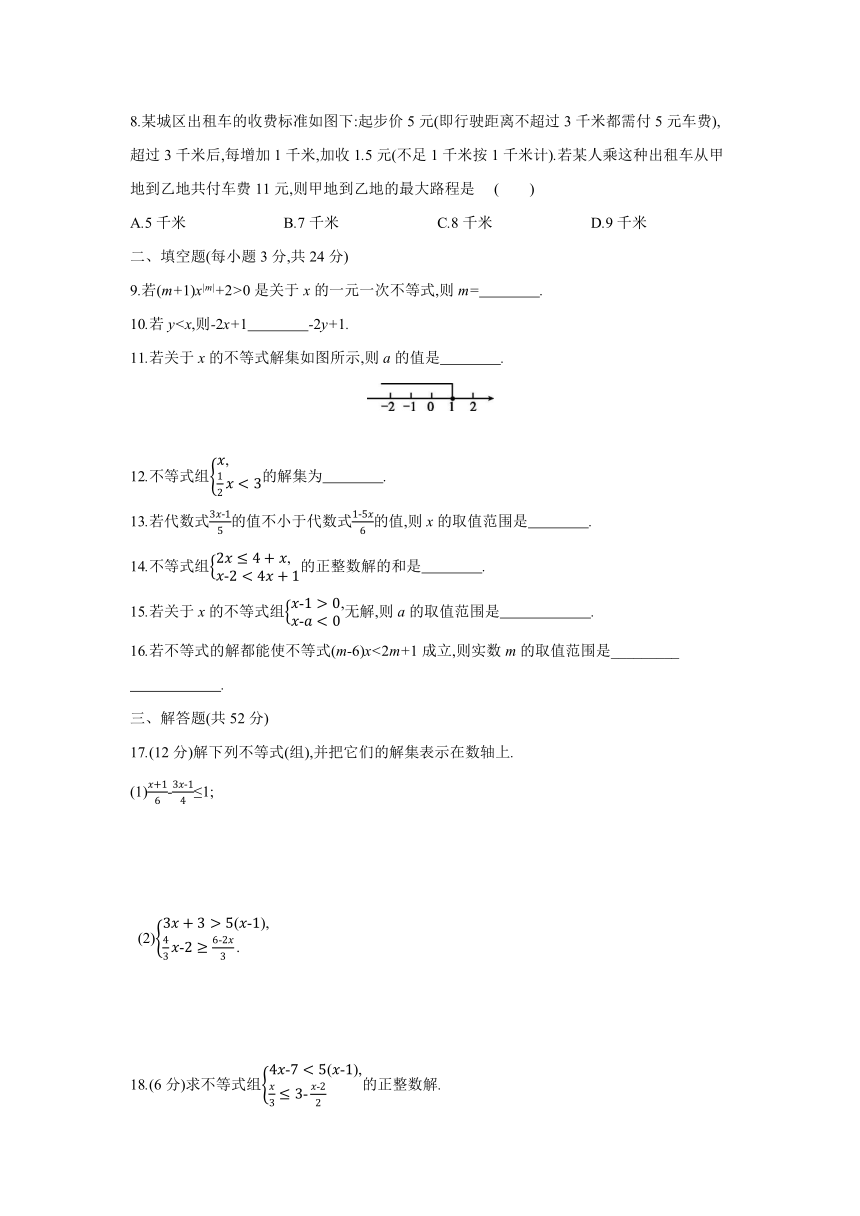 8.某城区出租车的收费标准如图下:起步价 5 元(即行驶距离不超过 3 千米都需付 5 元车费),
超过 3 千米后,每增加 1 千米,加收 1.5 元(不足 1 千米按 1 千米计).若某人乘这种出租车从甲
地到乙地共付车费 11 元,则甲地到乙地的最大路程是 (  )
A.5 千米 B.7 千米 C.8 千米 D.9 千米
二、填空题(每小题 3 分,共 24 分)
9.若(m+1)x|m|+2>0 是关于 x 的一元一次不等式,则 m=________.
10.若 y<x,则-2x+1________-2y+1.
11.若关于 x 的不等式解集如图所示,则 a 的值是________.
-2 -1 0 1 2
12.不等式组{x, 1/2 x < 3 的解集为________.
13.若代数式 3x-1/5 的值不小于代数式 1-5x/6 的值,则 x 的取值范围是________.
14.不等式组{2x ≤ 4 + x, x-2 < 4x + 1 的正整数解的和是________.
15.若关于 x 的不等式组{x-1 > 0, x-a < 0 无解,则 a 的取值范围是____________.
16.若不等式的解都能使不等式(m-6)x<2m+1 成立,则实数 m 的取值范围是_________
____________.
三、解答题(共 52 分)
17.(12 分)解下列不等式(组),并把它们的解集表示在数轴上.
(1) x+1/6 - 3x-1/4 ≤1;
(2){3x + 3 > 5(x-1), 4/3 x-2 ≥ 6-2x/3.
18.(6 分)求不等式组{4x-7 < 5(x-1), x/3 ≤ 3- x-2/2 的正整数解.